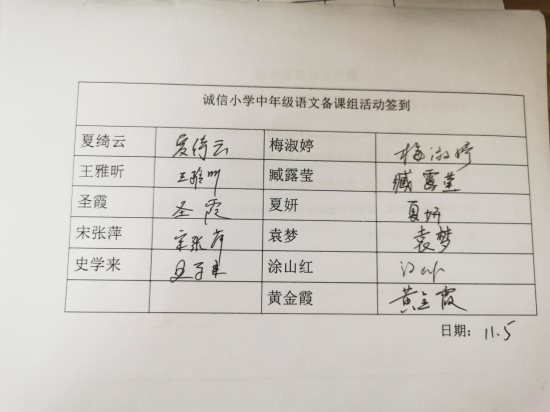 诚信小学中年级语文备课组活动签到
夏绮云 夏绮云 梅淑婷 梅淑婷
王雅昕 王雅昕 臧露莹 臧露莹
圣霞 圣霞 夏妍 夏妍
宋张萍 宋张萍 袁梦 袁梦
史学来 史学来 涂山红
黄金霞 黄金霞
日期：11.5